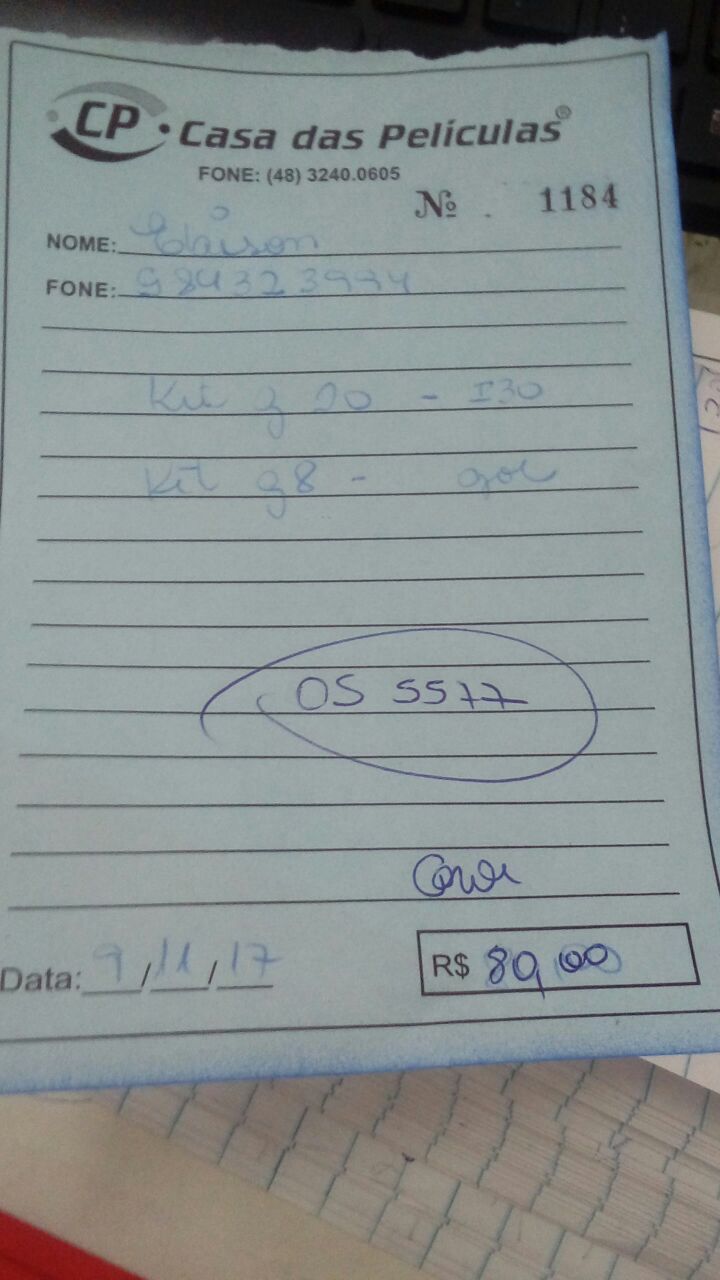 CP • Casa das Películas®
FONE: (48) 3240.0605
Nº . 1184
NOME:
FONE: 984323974
Kit g 20 - I30
Kit g8 - gol
OS 5577
Data: 9/11/17 R$ 80,00